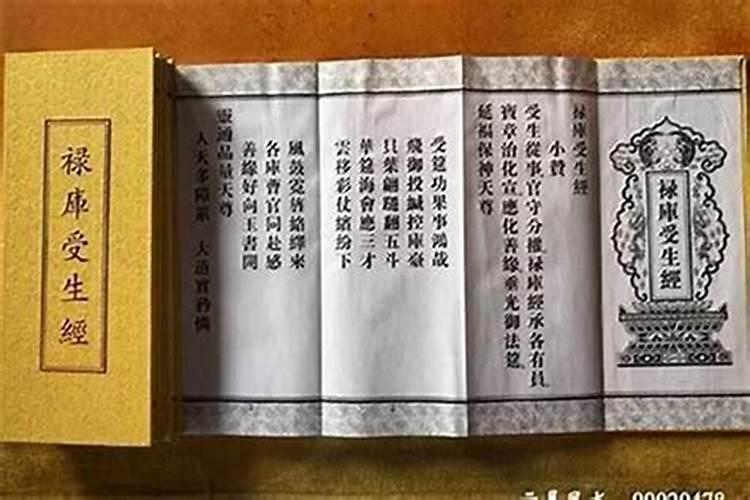 祿庫受生經
祿庫受生經
祿庫受生經
小贊
受生從事官守分權祿庫經承各有員
寶章治化宣應化善緣垂光御法筵
延福保神天尊
受筵功果事鴻哉
飛御投緘控庫臺
貝葉翩翻五斗
華筵海會應三才
雲移彩仗繽紛下
風鼓霓旌絡繹來
各庫曹官同赴感
善緣好向玉書開
靈通品量天尊
人天多障累 大道實矜憐